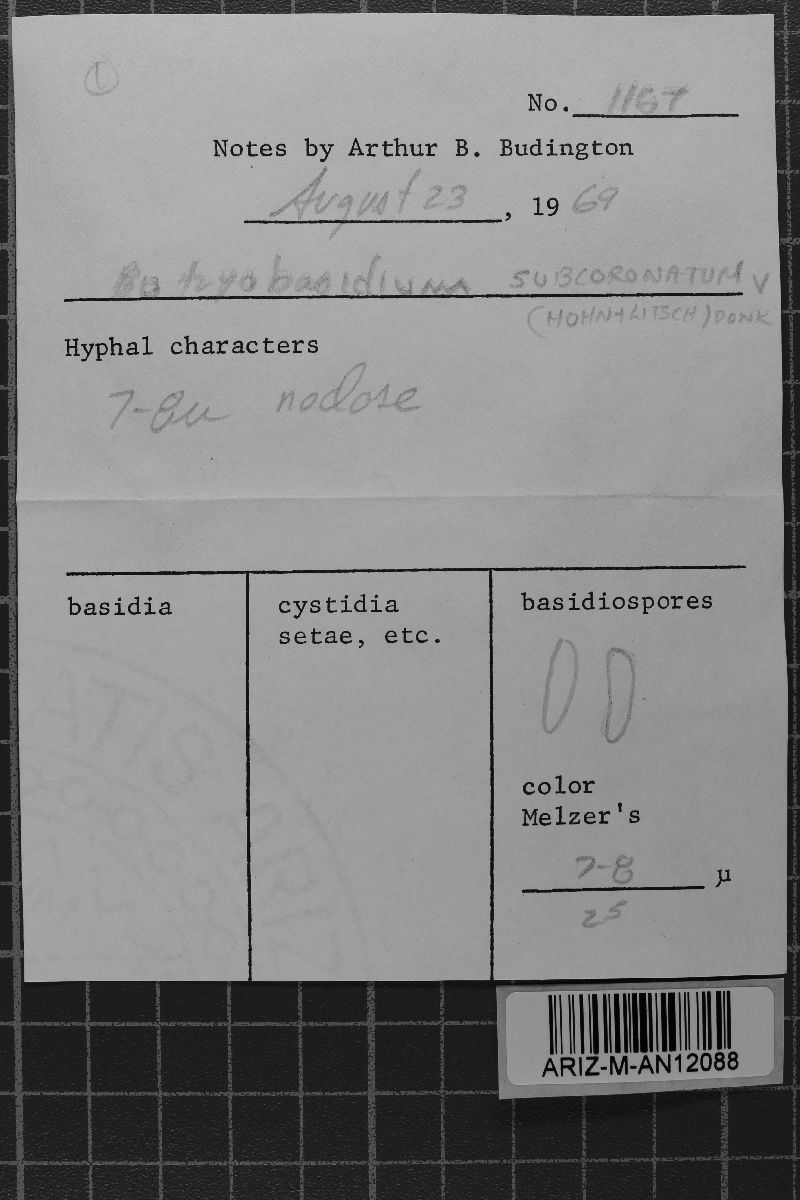 1
No. 1167
Notes by Arthur B. Budington
August 23, 1969
Botryobasidium SUBCORONATUM V
(HOHN & LITSCH) DONK
Hyphal characters
7-8u nodose
basidia
cystidia
setae, etc.
basidiospores
color
Melzer's
7-8 µ
25
ARIZ-M-AN12088